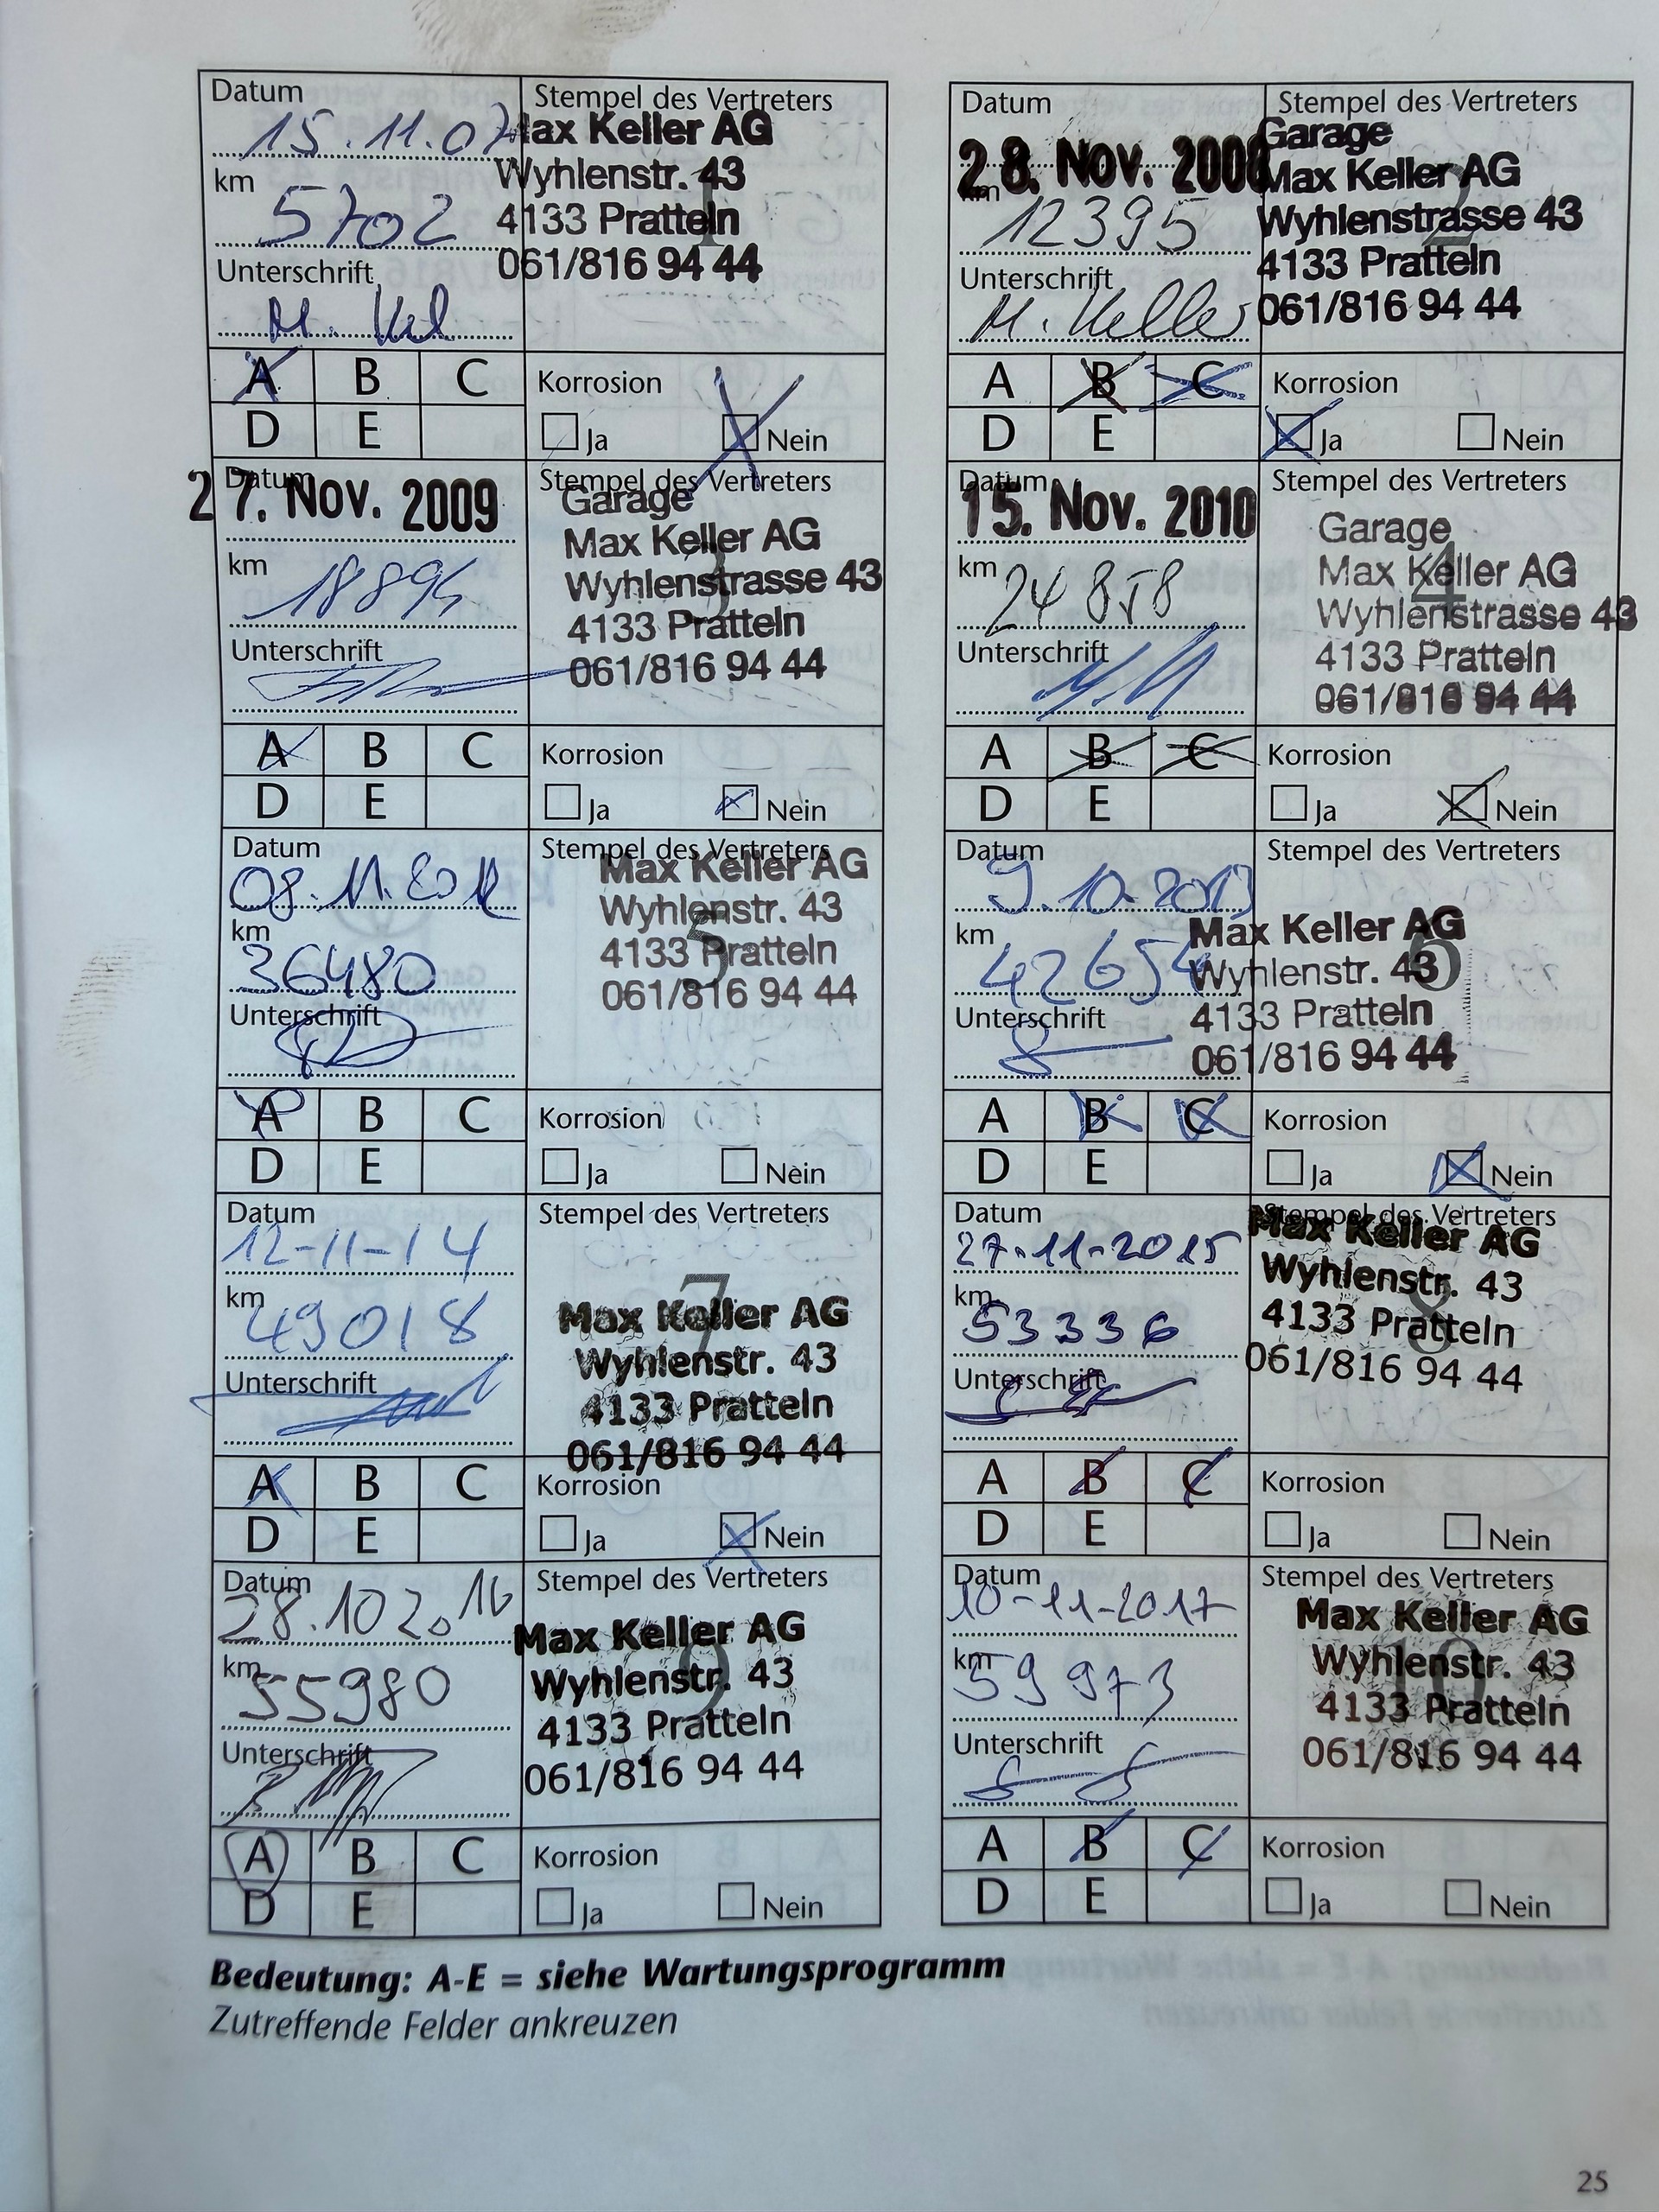 Datum
15.11.07
km
5702
Unterschrift
Stempel des Vertreters
Max Keller AG
Wyhlenstr. 43
4133 Pratteln
061/816 94 44
1
A B C
D E
Korrosion
Ja Nein
Datum
28. Nov. 2008
km
12395
Unterschrift
M. Keller
Stempel des Vertreters
Garage
Max Keller AG
Wyhlenstrasse 43
4133 Pratteln
061/816 94 44
2
A B C
D E
Korrosion
Ja Nein
Datum
27. Nov. 2009
km
18894
Unterschrift
Stempel des Vertreters
Garage
Max Keller AG
Wyhlenstrasse 43
4133 Pratteln
061/816 94 44
3
A B C
D E
Korrosion
Ja Nein
Datum
15. Nov. 2010
km
24858
Unterschrift
Stempel des Vertreters
Garage
Max Keller AG
Wyhlenstrasse 43
4133 Pratteln
061/816 94 44
4
A B C
D E
Korrosion
Ja Nein
Datum
08.11.2012
km
36480
Unterschrift
Stempel des Vertreters
Max Keller AG
Wyhlenstr. 43
4133 Pratteln
061/816 94 44
5
A B C
D E
Korrosion
Ja Nein
Datum
9.10.2013
km
42654
Unterschrift
Stempel des Vertreters
Max Keller AG
Wyhlenstr. 43
4133 Pratteln
061/816 94 44
6
A B C
D E
Korrosion
Ja Nein
Datum
12-11-14
km
49018
Unterschrift
Stempel des Vertreters
7
Max Keller AG
Wyhlenstr. 43
4133 Pratteln
061/816 94 44
A B C
D E
Korrosion
Ja Nein
Datum
27-11-2015
km
53336
Unterschrift
Stempel des Vertreters
Max Keller AG
Wyhlenstr. 43
4133 Pratteln
061/816 94 44
8
A B C
D E
Korrosion
Ja Nein
Datum
28.10 2016
km
55980
Unterschrift
Stempel des Vertreters
Max Keller AG
Wyhlenstr. 43
4133 Pratteln
061/816 94 44
9
A B C
D E
Korrosion
Ja Nein
Datum
10-11-2017
km
59973
Unterschrift
Stempel des Vertreters
Max Keller AG
Wyhlenstr. 43
4133 Pratteln
061/816 94 44
10
A B C
D E
Korrosion
Ja Nein
Bedeutung: A-E = siehe Wartungsprogramm
Zutreffende Felder ankreuzen
25